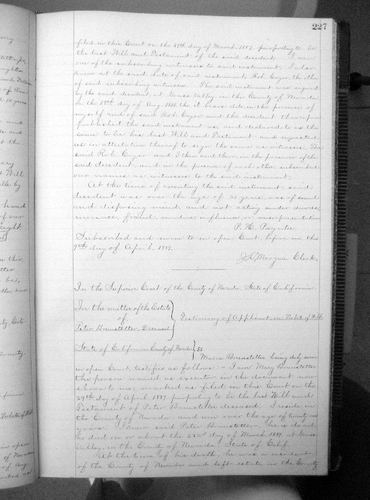 227
filed in this Court on the 29th day of March 1889, purporting to be
the last Will and Testament of the said decedent. I was
one of the subscribing witnesses to said instrument. I also
knew at the said date of said instrument, Rob. Cryor, the other
of said subscribing witness. The said instrument was signed
by the said decedent, at Grass Valley in the County of Nevada
on the day of Aug. 1888 the it bears date, in the presence of
myself and of said Rob Cryor and the decedent thereupon
published the said instrument as and declared to us the
same to be his last Will and Testament and requested
us in attestation thereof to sign the same as witnesses. The
said Rob. Cryor and I then and there in the presence of the
said decedent and in the presence of each other subscribed
our names as witnesses to the said instrument.
At the time of executing the said instrument said
decedent was over the age of 21 years, was of sound
and disposing mind and not acting under duress,
menace, fraud, undue influence, or misrepresentation
P. H. Paynter
Subscribed and sworn to in open Court before me this
9th day of April 1889.
J. L. Morgan Clerk.
In the Superior Court of the County of Nevada State of California.
In the matter of the Estate
of
Peter Brunstetter Deceased
Testimony of Applicant on Probate of Will
State of California County of Nevada ss
Brunstetter being duly sworn
in open Court testifies as follows: I am Mary Brunstetter
the person named as executrix in the document now
shown to me, marked as filed in this Court on the
29th day of April 1889, purporting to be the last Will and
Testament of Peter Brunstetter deceased. I reside in
the County of Nevada and am over the age of twenty one
years. I knew said Peter Brunstetter, he is dead,
he died on or about the 22nd day of March 1889 at Grass
Valley in the County of Nevada State of Calif.
At the time of his death, he was a resident
of the County of Nevada and left estate in the County